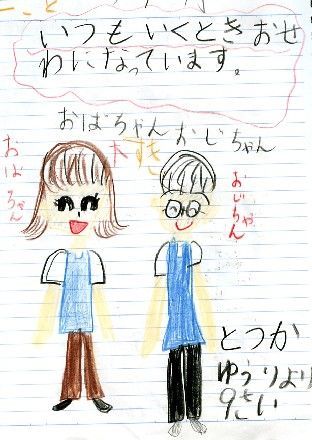 いつもいくときおせ
わになっています。
おばちゃん おじちゃん
大すき
おばちゃん
おじちゃん
とつか
ゆうりより
9さい